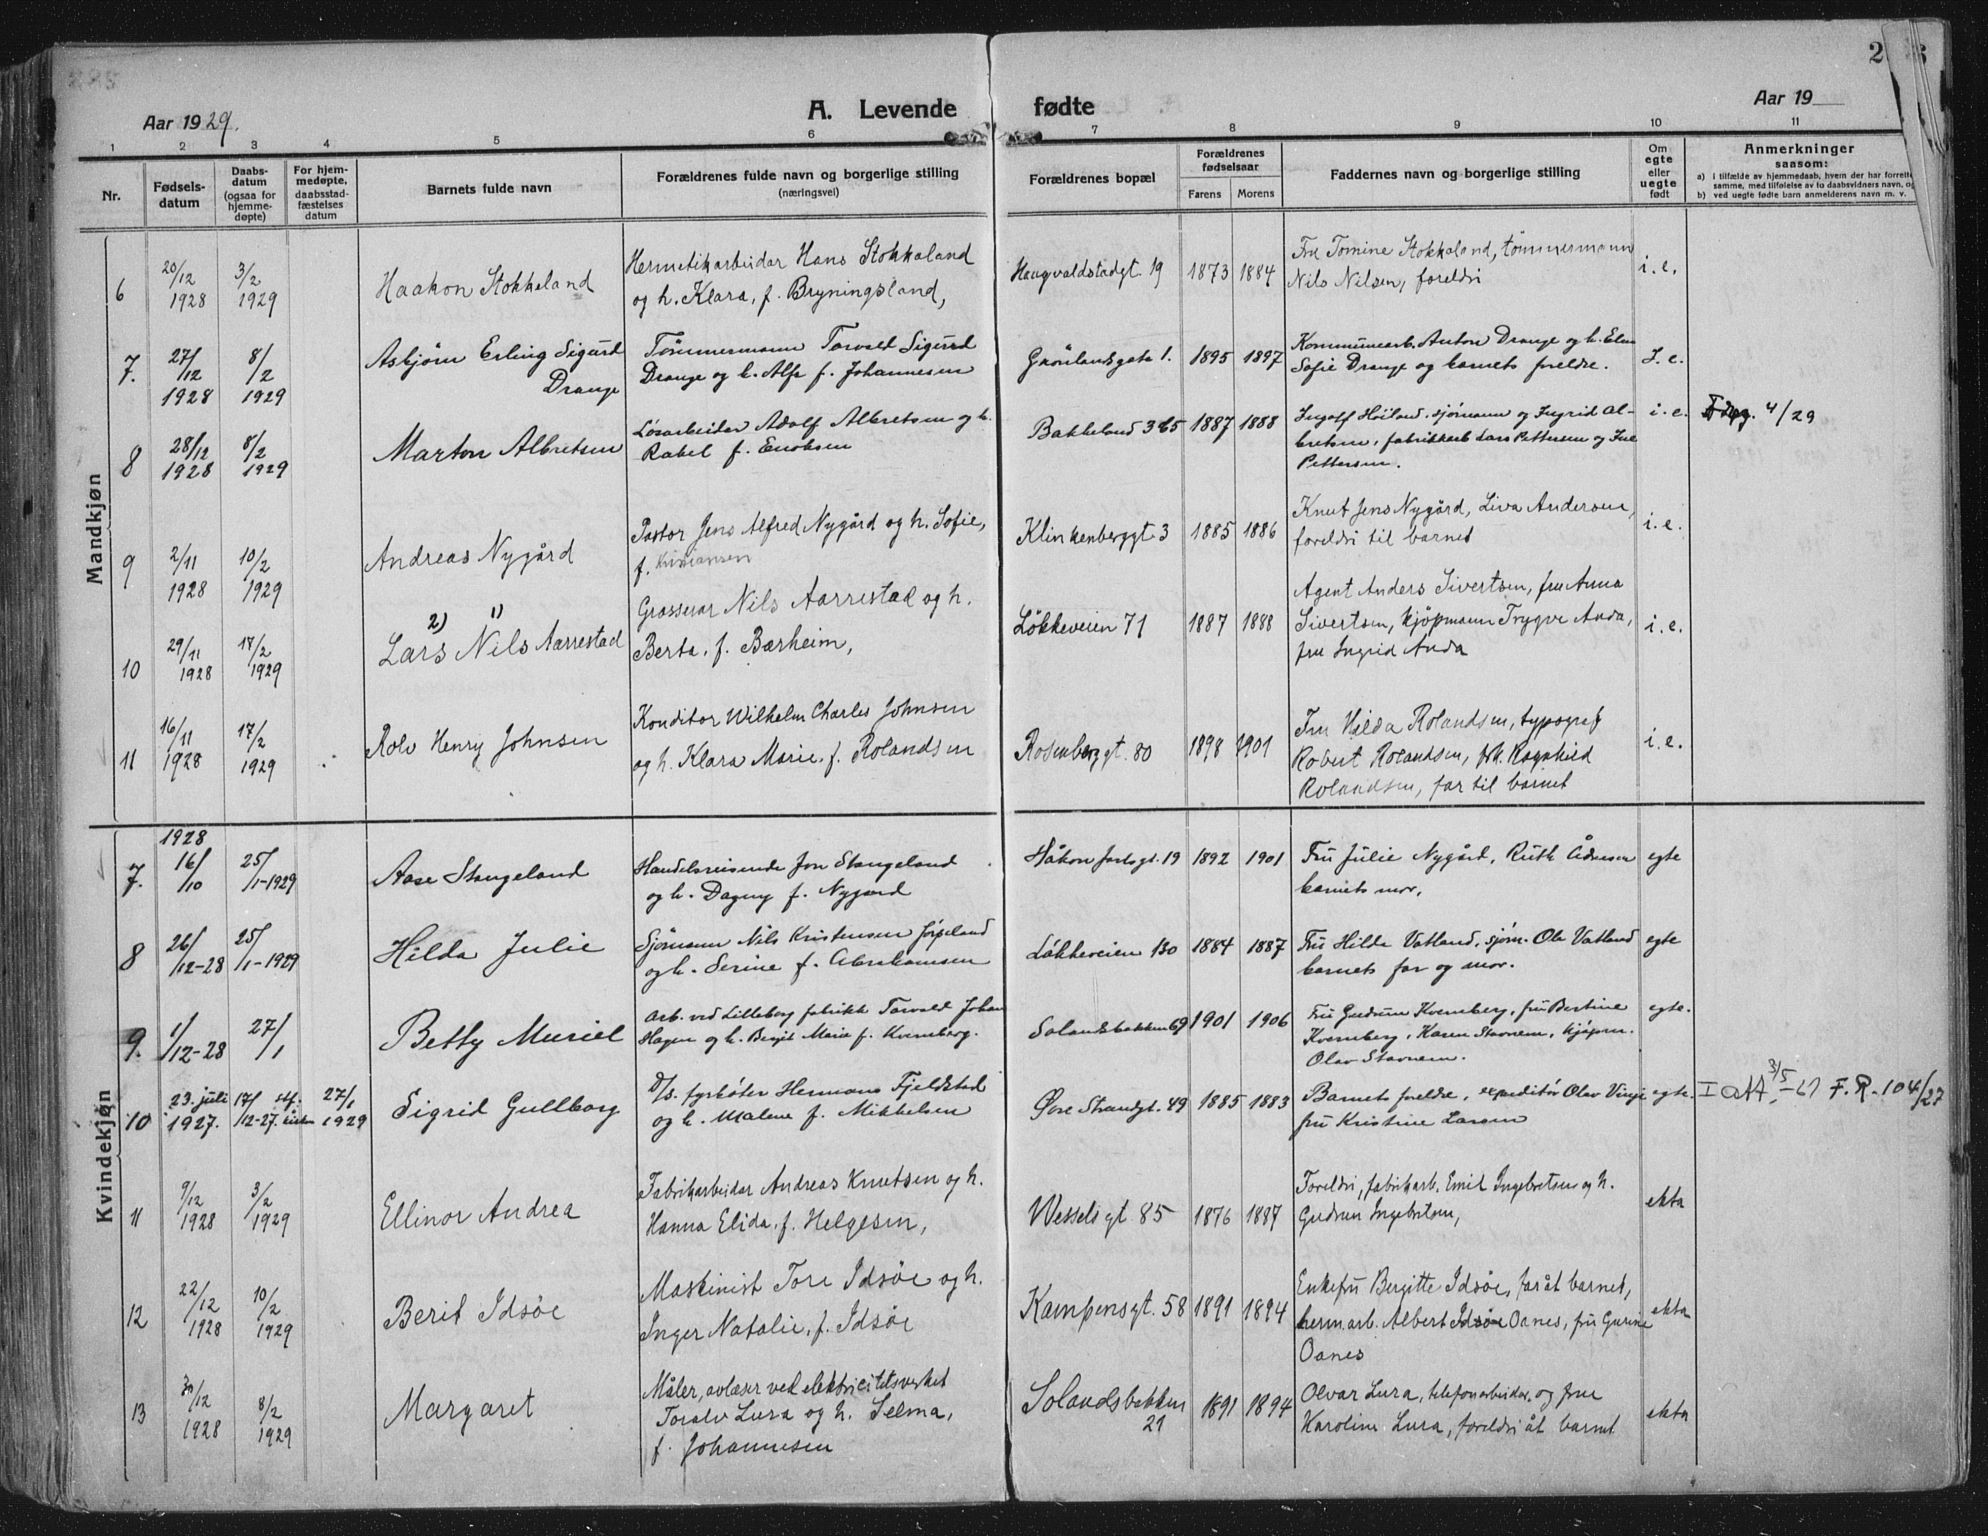 Aar 1929.
A. Levende fødte
Aar 19
1 2 3 4 5 6 7 8 9 10 11
Nr.
Fødsels-
datum
Daabs-
datum
(ogsaa for
hjemme-
døpte)
For hjem-
medøpte,
daabsstad-
fæstelses
datum
Barnets fulde navn
Forældrenes fulde navn og borgerlige stilling
(næringsvei)
Forældrenes bopæl
Forældrenes
fødselsaar
Farens Morens
Faddernes navn og borgerlige stilling
Om
egte
eller
uegte
født
Anmerkninger
saasom:
a) i tilfælde av hjemmedaab, hvem der har forrette
samme, med tilføielse av to daabsvidners navn, og
b) ved uegte fødte barn anmelderens navn m. v.
Mandkjøn
6
20/12
1928
3/2
1929
Haakon Stokkeland
Hermetikarbeidar Hans Stokkaland
og h. Klara, f. Bryningsland,
Haugvaldstadgt. 19
1873 1884
Fru Tomine Stokkaland, tømmermann
Nils Nilsen, foreldri
i. e.
7.
27/12
1928
8/2
1929
Asbjørn Erling Sigurd
Drange
Tømmermann Torvald Sigurd
Drange og h. Alfa f. Johannesen
Grønlandsgata 1.
1895 1897
Kommunearb. Anton Drange og h.
Sofie Drange og barnets foreldre.
I. e.
8
28/12
1928
8/2
1929
Marton Albretsen
Løsarbeider Adolf Albretsen og h.
Rakel f. Enoksen
Bakkeland 365
1887 1888
Ingolf Høiland, sjømann og Ingrid Al-
bretsen, fabrikkarb Lars Pettersen og
Pettersen.
i. e.
4/29
9
2/11
1928
10/2
1929
Andreas Nygård
Pastor Jens Alfred Nygård og h. Sofie,
f. Kristiansen
Klinkenberggt. 3
1885 1886
Knut Jens Nygård, Liva Andersen,
foreldri til barnet
i. e.
10
29/11
1928
17/2
1929
2) 1)
Lars Nils Aarrestad
Grosserar Nils Aarrestad og h.
Berta, f. Bærheim,
Løkkeveien 71
1887 1888
Agent Anders Sivertsen, fru Anna
Sivertsen, kjøpmann Trygve Anda,
fru Ingrid Anda
i. e.
11
16/11
1928
17/2
1929
Rolv Henry Johnsen
Konditor Wilhelm Charles Johnsen
og h. Klara Marie, f. Rolandsen
Rosenberggt. 80
1898 1901
Fru Hilda Rolandsen, typograf
Robert Rolandsen, frk. Ragnhild
Rolandsen, far til barnet
i. e.
Kvindekjøn
7.
1928
16/10
25/1-1929
Aase Stangeland
Handelsreisende Jon Stangeland
og h. Dagny f. Nygaard
Håkon Jarlsgt. 19
1892 1901
Fru Julie Nygård, Ruth
barnets mor.
egte
8
26/12-28
25/1-1929
Hilda Julie
Sjømann Nils Kristensen Jørpeland
og h. Serine f. Abrahamsen
Løkkeveien 130
1884 1887
Fru Hilda Vatland, sjøm. Ola Vatland
barnets far og mor.
egte
9.
1/12-28
27/1
Betty Muriel
Arb. ved Lilleborg fabrikk Torvald Johan
Hagen og h. Bergit Marie f. Kvernberg.
Solandsbakken 69
1901 1906
Fru Gudrun Kvernberg, fru Bertine
Kvernberg, Karen Stavnem, kjøpm.
Olav Stavnem.
egte.
10
23. juli
1927.
17/12-27.
27/1
1929
Sigrid Gullborg
D/s. fyrbøter Hermans Fjeldstad
og h. Malene f. Mikkelsen
Øvre Strandgt. 49
1885 1883
Barnets foreldre, expeditør Olav Vinje
fru Kristine Larsen
egte.
I att 3/5-67 F. R. 104/27
11
9/12
1928
3/2
1929
Ellinor Andrea
Fabrikarbeidar Andreas Knutsen og h.
Hanna Elida, f. Helgesen,
Wesselsgt. 85
1876 1887
Foreldri, fabrikarb. Emil Ingebretsen og h.
Gudrun Ingebretsen,
ekta
12
22/12
1928
10/2
1929
Berit Idsøe
Maskinist Tore Idsøe og h.
Inger Natalie, f. Idsøe
Kampensgt. 58
1891 1894
Enkefru Bergitte Idsøe, far åt barnet,
herm.arb. Albert Idsøe Oanes, fru Gurine
Oanes
ekta
13
30/12
1928
8/2
1929
Margaret
Måler, avlæser ved elektricitetsverket
Toralv Lura og h. Selma,
f. Johannesen
Solandsbakken
21
1891 1894
Olvar Lura, telefonarbeidar og frue
Karoline Lura, foreldri åt barnet
ekta